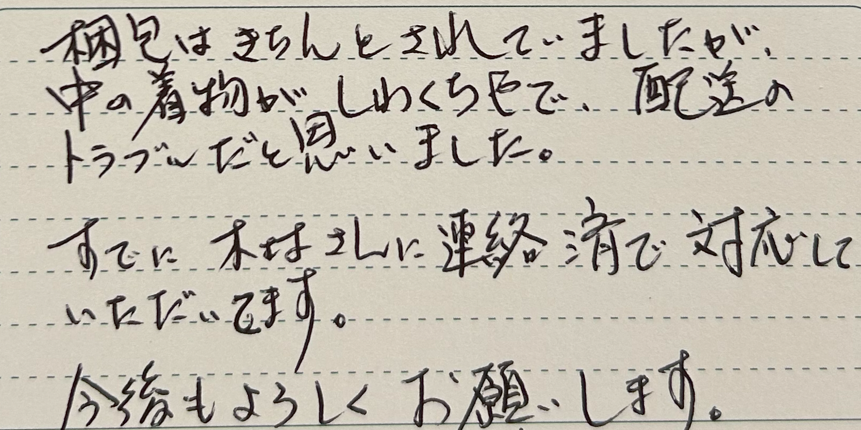 梱包はきちんとされていましたが、
中の着物がしわくちゃで、配送の
トラブルだと思いました。
すでに木村さんに連絡済で対応して
いただいてます。
今後もよろしくお願いします。